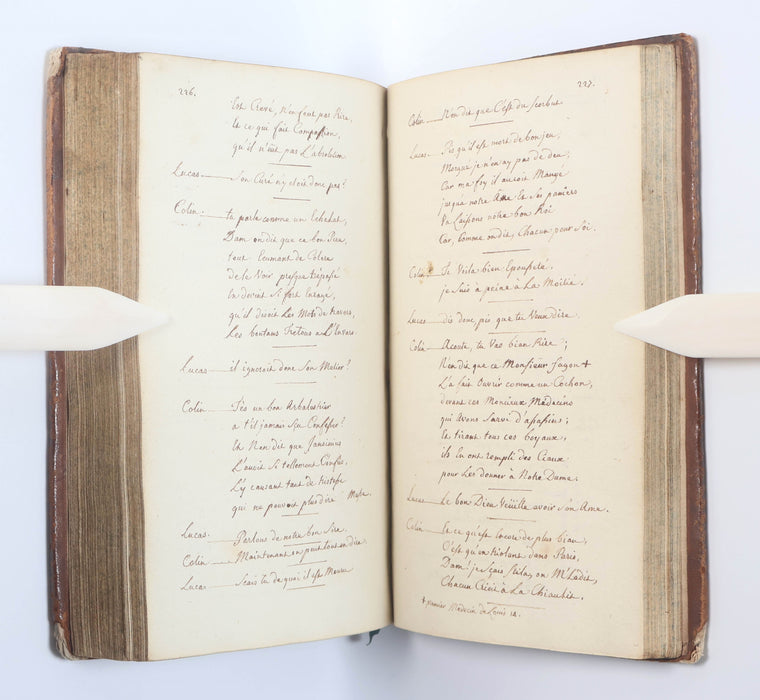 226.
Est Crevé, n'en font pas Rire,
Et ce qui fait Compassion,
qu'il n'eût pas L'absolution
Lucas Son Curé n'y étoit donc pas?
Colin tu parle comme un
Dam on dit que ce bon Pere,
tout de Colere
de le Voir presque trépassé
en devint Si fort Enragé,
qu'il disoit Les Mots de travers,
Les boutons a L'Envers
Lucas il ignoroit donc Son Metier?
Colin un bon Arbalestrier
a t'il jamais Sçu Confesser?
Et N'en dit que Jansénius
L'avoit Si tellement Confus,
L'y causant tant de tristesse
qui ne pouvoit plus dire Messe.
Lucas Parlons de notre bon Sire.
Colin Maintenant on peut tout en dire.
Lucas Scais tu de quoi il est Mort
227.
Colin N'en dit que C'est du Scorbut
Lucas qu'il est mort de bon jeu;
Morgué je n'en ay pas de deu;
Car ma foy il auroit Mangé
jusqu'a notre Ane Et Ses paniers
Ea Laissons notre bon Roi
Car, Comme on dit, Chacun pour Soi.
Colin Te Voila bien Epousseté.
je Suis a peine à La Moitié.
Lucas dis donc, pis que tu Veux dire.
Colin Acoute, tu Vas bian Rire;
N'en dit que ce Monsieur fagon +
L'a fait Ouvrir comme un Cochon,
devant ces Monsieux Medecins
qui Avons Servi d'assassins;
Et tirant tous ces boyaux,
ils En ont rempli des Ciaux
pour Les donner à Notre Dame.
Lucas Le bon Dieu Veüille avoir Son Ame.
Colin Et ce qu'est Encore de plus biau,
C'est qu'en triolant dans Paris,
Dam! je Scais Stila, on M'L'a dit,
Chacun Crioit à La Chianlit.
+ premier Medecin de Louis 14.